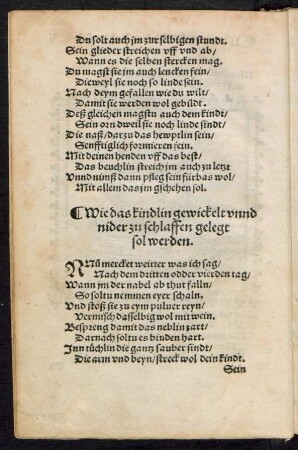 Du solt auch jm zur selbigen stundt.
Sein glieder streichen vff vnd ab/
Wann es die selben stercken mag.
Du magst sie jm auch lencken fein/
Dieweyl sie noch so linde sein.
Nach deyn gefallen wie du wilt/
Damit sie werden wol gebildt.
Deß gleichen magstu auch dem kindt/
Sein orn dweil sie noch linde sindt/
Die naß/ darzu das hewptlin sein/
Senfftiglich formieren fein.
Mit deinen henden vff das best/
Das beuchlin streich jm auch zu letzt
Vnnd nimß dann pfleg sein fürbas wol/
Mit allem das jm gschehen sol.
¶Wie das kindlin gewickelt vnnd
nider zu schlaffen gelegt
sol werden.
NNu mercket weitter was ich sag/
Nach dem dritten odder vierden tag/
Wann jm der nabel ab thut falln/
So soltu nemmen eyer schaln.
Vnd stoß sie zu eym puluer reyn/
Vermisch dasselbig wol mit wein.
Bespreng damit das neblin zart/
Darnach soltu es binden hart.
Inn tüchlin die gantz sauber sindt/
Die arm vnd beyn/ streck wol dein kindt.
Sein